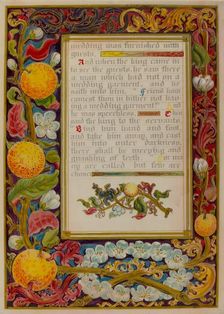 wedding was furnished with
guests.
And when the king came in
to see the guests, he saw there
a man which had not on a
wedding garment: and he
saith unto him, Friend how
camest thou in hither not having
a wedding garment?
he was speechless.
and the king to the servants,
Bind him hand and foot,
and take him away, and cast
him into outer darkness;
there shall be weeping and
gnashing of teeth. For many
are called, but few are
chosen.